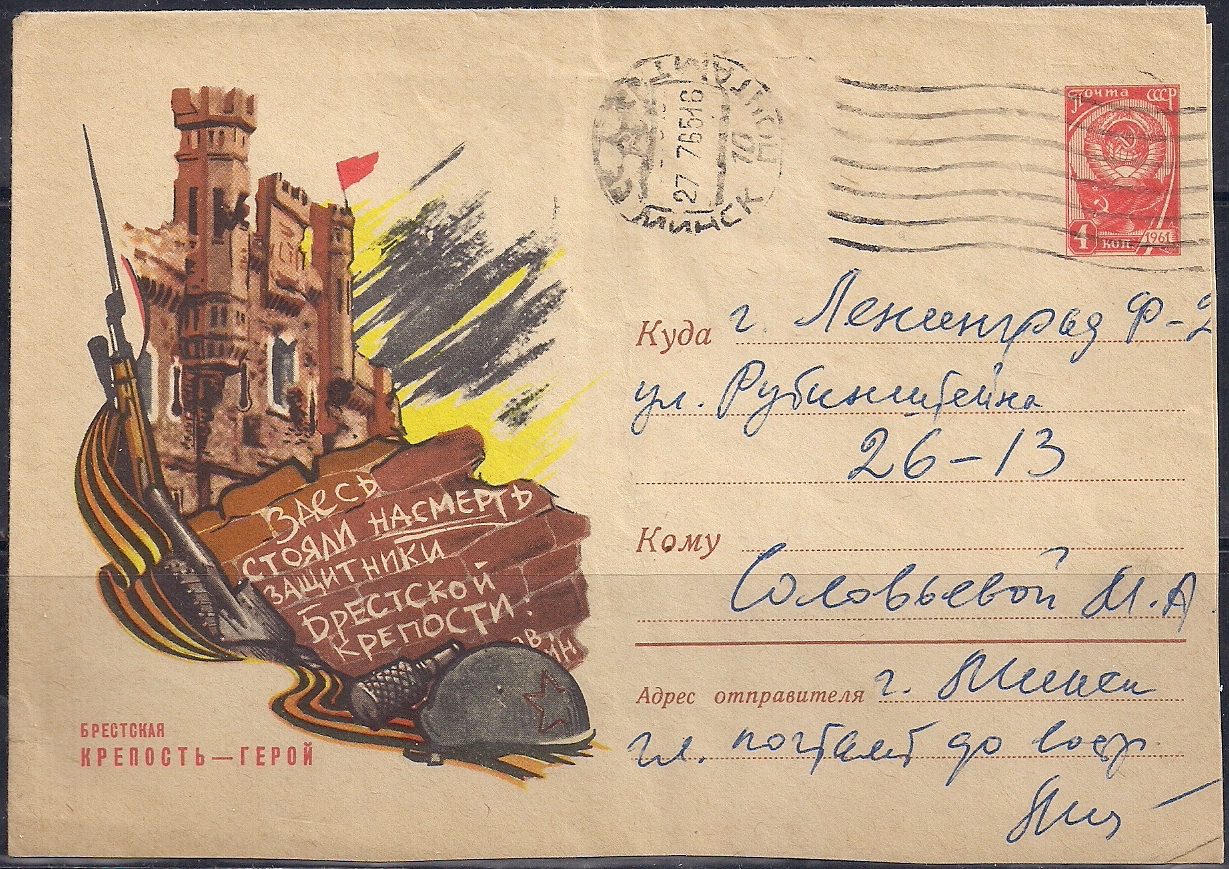 ПОЧТАМТ
27 7 65 16
МИНСК
Почта СССР
4 КОП. 1961
Куда г. Ленинград Ф-2
ул. Рубинштейна
26-13
Кому
Соловьевой М. А.
Адрес отправителя г. Минск
гл. почтамт до востр.
ЗДЕСЬ
СТОЯЛИ НАСМЕРТЬ
ЗАЩИТНИКИ
БРЕСТСКОЙ
КРЕПОСТИ!
БРЕСТСКАЯ
КРЕПОСТЬ — ГЕРОЙ